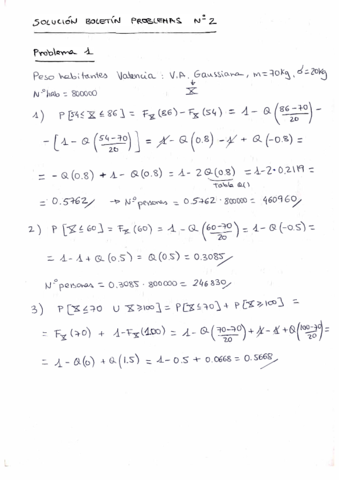 SOLUCIÓN BOLETÍN PROBLEMAS Nº 2
Problema 1
Peso habitantes Valencia : V.A. Gaussiana, m=70Kg, σ=20Kg
Nº hab = 800000 X
1) P[54≤X≤86] = F_X(86) - F_X(54) = 1 - Q(86-70/20) -
- [1 - Q(54-70/20)] = 1 - Q(0.8) - 1 + Q(-0.8) =
= -Q(0.8) + 1 - Q(0.8) = 1 - 2Q(0.8) = 1-2·0.2119 =
Tabla Q()
= 0.5762 → Nº personas = 0.5762·800000 = 460960
2) P[X≤60] = F_X(60) = 1 - Q(60-70/20) = 1 - Q(-0.5) =
= 1 - 1 + Q(0.5) = Q(0.5) = 0.3085
Nº personas = 0.3085·800000 = 246830
3) P[X≤70 ∪ X≥100] = P[X≤70] + P[X≥100] =
= F_X(70) + 1 - F_X(100) = 1 - Q(70-70/20) + 1 - 1 + Q(100-70/20) =
= 1 - Q(0) + Q(1.5) = 1 - 0.5 + 0.0668 = 0.5668